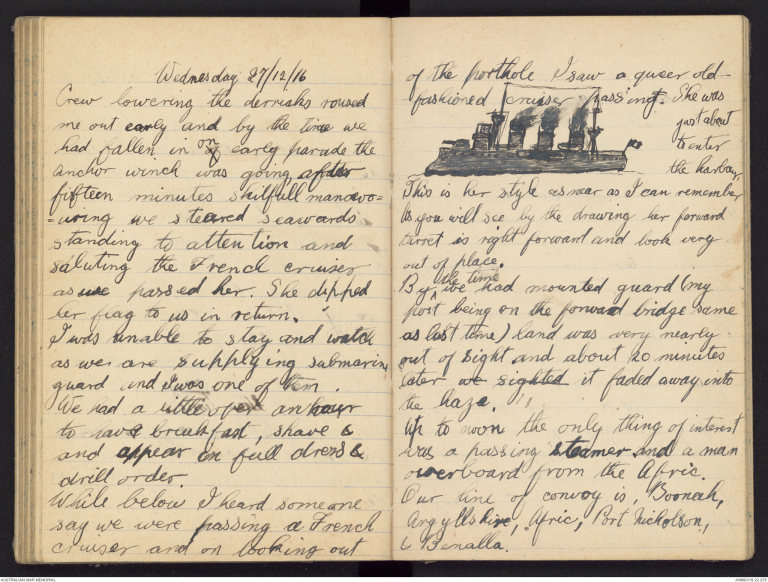 Wednesday 27/12/16
Crew lowering the derricks roused
me out early and by the time we
had fallen in on early parade the
anchor winch was going, after
fifteen minutes skilfull manouvo=
=uring we steared seawards
standing to attention and
saluting the French cruiser
as we passed her. She dipped
her flag to us in return.
I was unable to stay and watch
as we are supplying submarine
guard and I was one of them.
We had a little over an hour
to have breakfast, shave &
and appear in full dress &
drill order.
While below I heard someone
say we were passing a French
cruiser and on looking out
of the porthole I saw a queer old-
fashioned cruiser passing. She was
just about
to enter
the harbour.
This is her style as near as I can remember
As you will see by the drawing her forward
turret is right forward and look very
out of place.
By the time we had mounted guard (my
post being on the forward bridge same
as last time) land was very nearly
out of sight and about 20 minutes
later we sighted it faded away into
the haze.
Up to noon the only thing of interest
was a passing steamer and a man
overboard from the Afric.
Our line of convoy is, Boonah,
Argyllshire, Afric, Port Nicholson,
& Benalla.
AUSTRALIAN WAR MEMORIAL